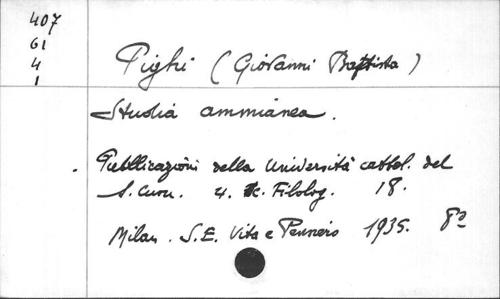 407
61
4
1
Pighi (Giovanni Battista)
Studia ammianea.
Pubblicazioni della Università cattol. del
S. Cuore. 4. Filolog. 18.
Milan. S.E. Vita e Pensiero 1935. 8º